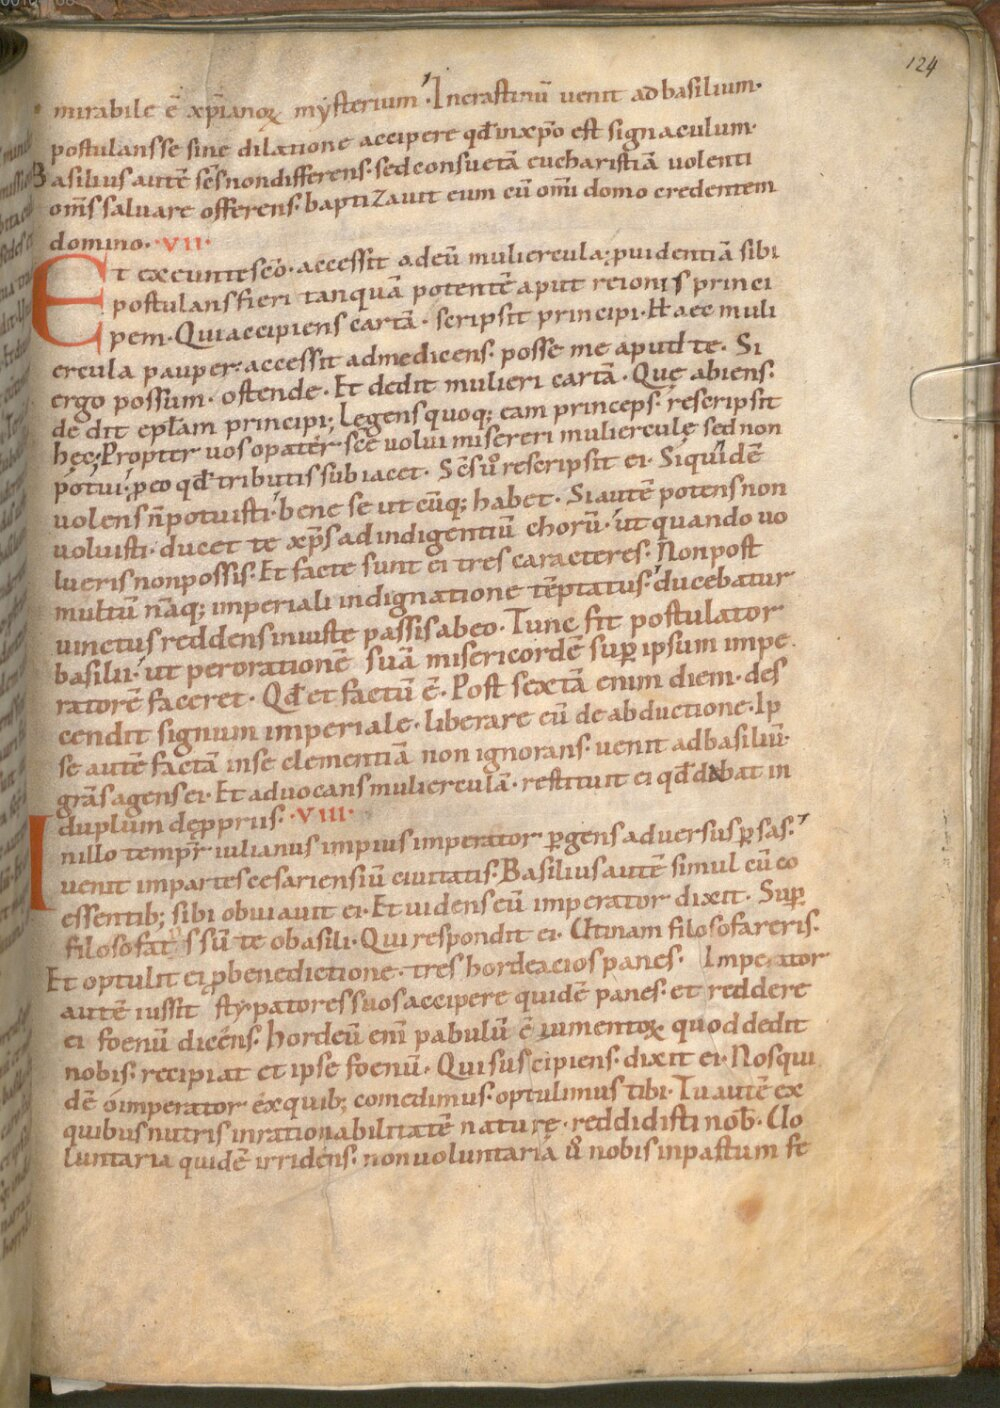 124
mirabile ē xp̄ianoꝝ mysterium · Incrastinū venit adbasilium·
postulans se sine dilatione accipere qđ inxp̄o est signaculum·
Basilius autē sc̄s non differens· sed consuetā eucharistiā uolenti
om̄s saluare offerens· baptizauit eum cū om̄i domo credentem
domino· ·VII·
Et exeunte s̄cō· accessit adeū muliercula; ꝓuidentiā sibi
postulans fieri tanquā potentē aput reionis princi
pem· Qui accipiens cartā· scripsit principi· Haec muli
ercula pauper· accessit ad me dicens· posse me apud te· Si
ergo possum· ostende· Et dedit mulieri cartā· Quę abiens·
de dit epl̄am principi; Legens quoq; eam princeps· rescripsit
hęc; Propter uos o pater sc̄e uolui misereri mulierculę sed non
potui· ꝓ eo qđ tributis subiacet· Sc̄s ū rescripsit ei· Siquidē
uolens n̄ potuisti· bene se ut cūq; habet· Si autē potens non
uoluisti· ducet te xp̄s ad indigentiū chorū· ut quando uo
lueris non possis· Et facte sunt ei tres caracteres· Non post
multū nāq; imperiali indignatione tēptatus· ducebatur
uinctus reddens iniuste passis abeo· Tunc fit postulator
basilii· ut per orationē suā misericordē suꝑ ipsum impe
ratorē faceret· Qđ et factū ē· Post sextā enim diem· des
cendit signum imperiale· liberare eū de abductione· Ip
se autē factā in se clementiā non ignorans· venit adbasiliū·
grās agens ei· Et aduocans mulierculā· restituit ei qđ debat in
duplum dę ꝓpriis· ·VIII·
Inillo temp̄r iulianus impius imperator ꝑgens aduersus ꝑsas·
uenit impartes cesariensiū ciuitatis· Basilius autē simul cū co
essentib; sibi obuiauit ei· Et uidens eū imperator dixit· Suꝑ
filosofat s sū te o basili· Qui respondit ei· Utinam filosofareris·
Et optulit ei ꝓ benedictione· tres hordeacios panes· Imperator
autē iussit stypatores suos accipere quidē panes· et reddere
ei foenū dicens· hordeū enī pabulū ē iumentoꝝ quod dedit
nobis· recipiat et ipse foenū· Qui suscipiens· dixit ei· Nos qui
dē o imperator ex quib; comedimus· optulimus tibi· Tu autē ex
quibus nutris inrationabilitatē naturę· reddidisti nob̄· Uo
luntaria quidē irridens· non uoluntaria ū nobis inpastum fe